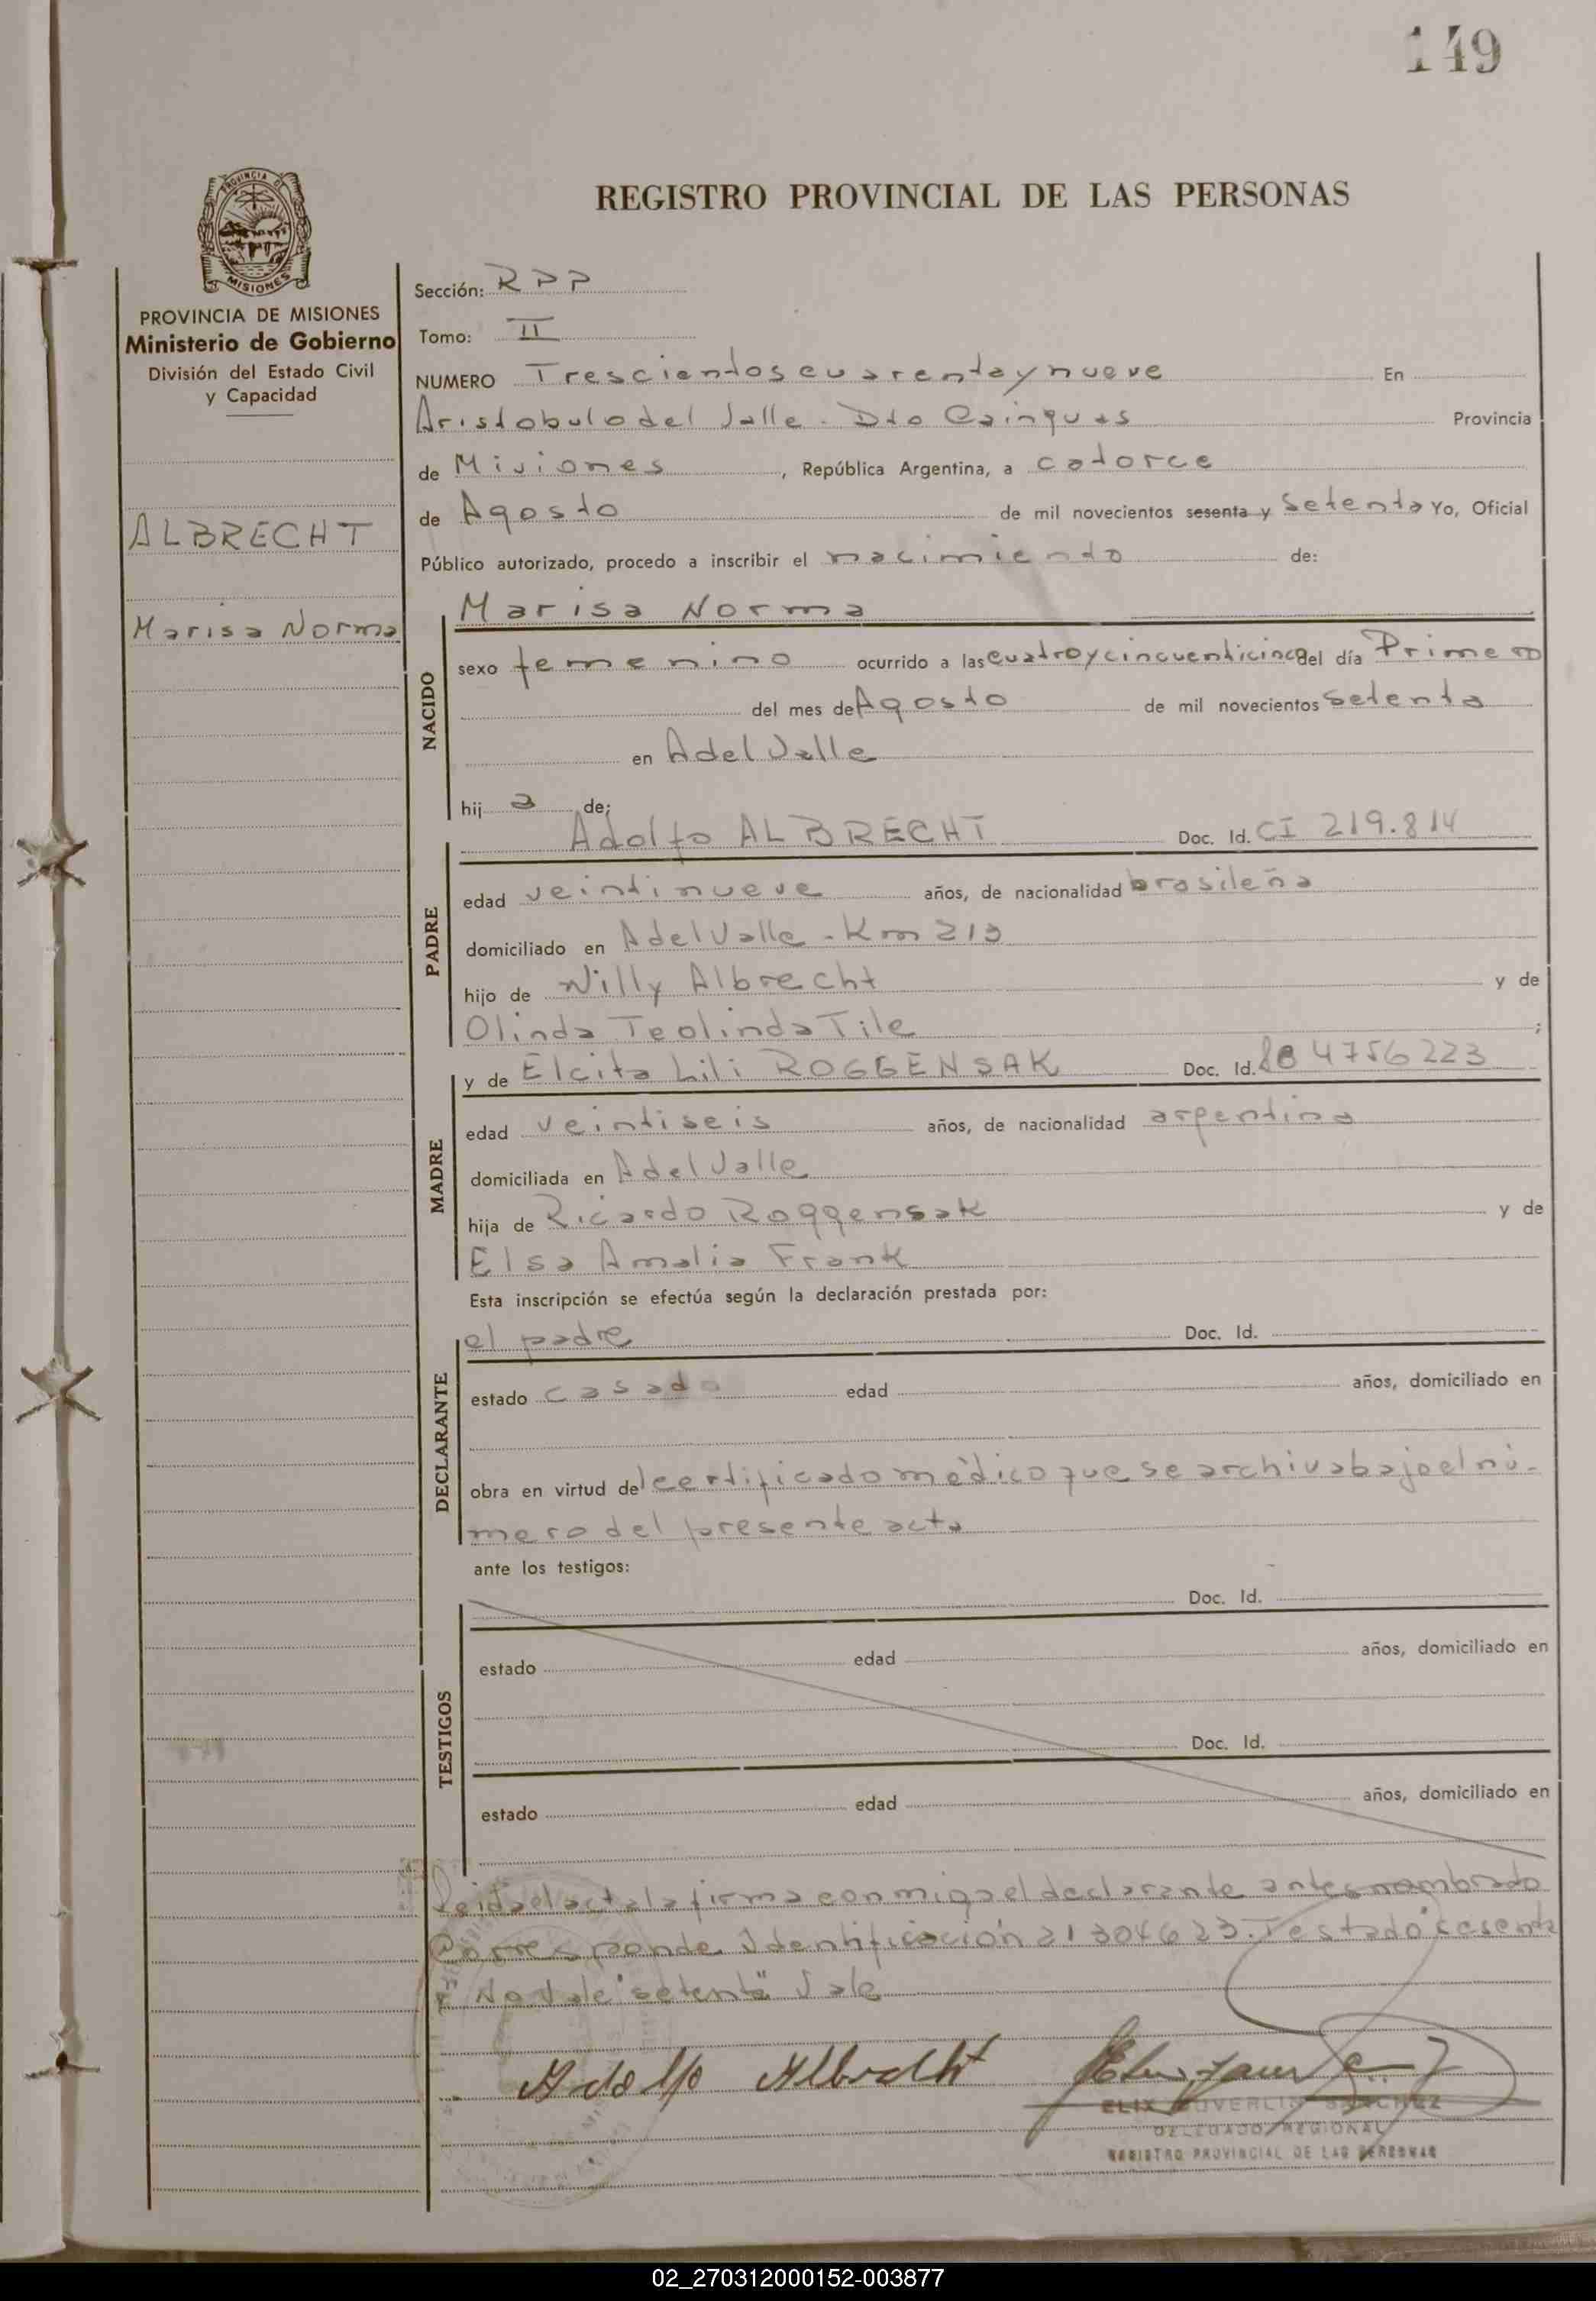 149
PROVINCIA DE
MISIONES
REGISTRO PROVINCIAL DE LAS PERSONAS
PROVINCIA DE MISIONES
Ministerio de Gobierno
División del Estado Civil
y Capacidad
ALBRECHT
Marisa Norma
Sección: RPP
Tomo: II
NUMERO Trescientos cuarenta y nueve En
Aristobulo del Valle - Dto Cainguas Provincia
de Misiones, República Argentina, a catorce
de Agosto de mil novecientos sesenta y Setenta Yo, Oficial
Público autorizado, procedo a inscribir el nacimiendo de:
NACIDO
Marisa Norma
sexo femenino ocurrido a las cuatro y cincuenticinco del día Primero
del mes de Agosto de mil novecientos Setenta
en A del Valle
hij a de;
PADRE
Adolfo ALBRECHT Doc. Id. CI 219.814
edad veintinueve años, de nacionalidad brasileña
domiciliado en A del Valle - Km 213
hijo de Willy Albrecht y de
Olinda Teolinda Tile ;
MADRE
y de Elcita Lili ROGGENSAK Doc. Id. 4756223
edad veintiseis años, de nacionalidad argentina
domiciliada en A del Valle
hija de Ricardo Roggensak y de
Elsa Amalia Frank
Esta inscripción se efectúa según la declaración prestada por:
DECLARANTE
el padre Doc. Id.
estado casado edad años, domiciliado en
obra en virtud del certificado médico que se archiva bajo el nú-
mero del presente acta
ante los testigos:
TESTIGOS
Doc. Id.
estado edad años, domiciliado en
Doc. Id.
estado edad años, domiciliado en
Leida el acta la firma conmigo el declarante antes nombrado
Corresponde Identificación 21304623. Testado "sesenta
y" No Vale "setenta" Vale
Adolfo Albrecht
ELIX SANCHEZ
DELEGADO REGIONAL
REGISTRO PROVINCIAL DE LAS PERSONAS
02_270312000152-003877